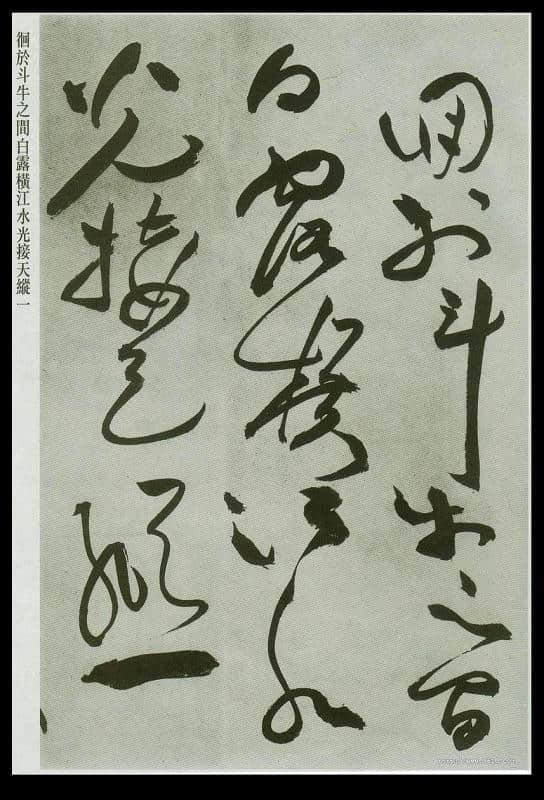 徊於斗牛之間
白露橫江水
光接天縱一
徊於斗牛之間白露橫江水光接天縱一